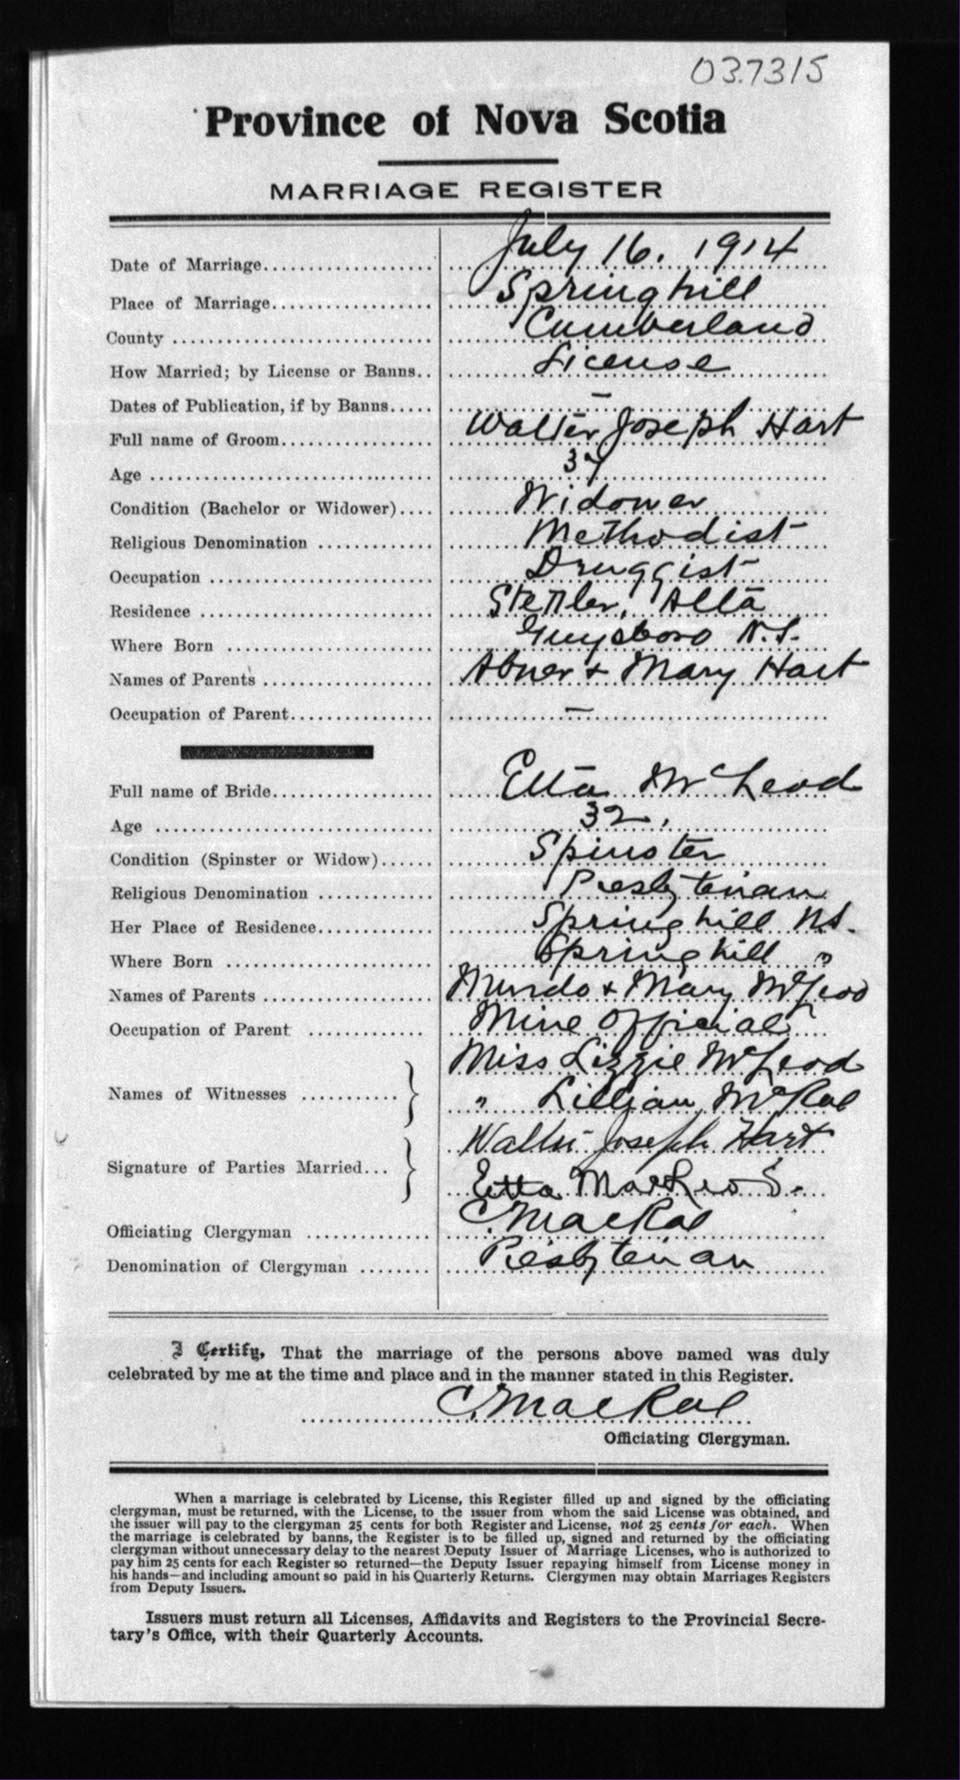 037315
Province of Nova Scotia
MARRIAGE REGISTER
Date of Marriage.................... July 16. 1914
Place of Marriage................... Springhill
County .............................. Cumberland
How Married; by License or Banns.. License
Dates of Publication, if by Banns..... —
Full name of Groom.................. Walter Joseph Hart
Age ................................. 37
Condition (Bachelor or Widower).... Widower
Religious Denomination ............. Methodist
Occupation .......................... Druggist
Residence ........................... Stettler, Alta
Where Born ........................ Guysboro N.S.
Names of Parents .................. Abner & Mary Hart
Occupation of Parent................ —
Full name of Bride................... Etta McLeod
Age ................................. 32.
Condition (Spinster or Widow)...... Spinster
Religious Denomination ............. Presbyterian
Her Place of Residence.............. Springhill NS.
Where Born ........................ Springhill "
Names of Parents .................. Murdo & Mary McLeod
Occupation of Parent ............. Mine Official
Names of Witnesses ........... } Miss Lizzie McLeod
" Lillian McRae
Signature of Parties Married... } Walter Joseph Hart
Etta MacLeod.
Officiating Clergyman .............. C. MacRae
Denomination of Clergyman ........ Presbyterian
I Certify, That the marriage of the persons above named was duly
celebrated by me at the time and place and in the manner stated in this Register.
C. MacRae
Officiating Clergyman.
When a marriage is celebrated by License, this Register filled up and signed by the officiating
clergyman, must be returned, with the License, to the issuer from whom the said License was obtained, and
the issuer will pay to the clergyman 25 cents for both Register and License, not 25 cents for each. When
the marriage is celebrated by banns, the Register is to be filled up, signed and returned by the officiating
clergyman without unnecessary delay to the nearest Deputy Issuer of Marriage Licenses, who is authorized to
pay him 25 cents for each Register so returned—the Deputy Issuer repaying himself from License money in
his hands—and including amount so paid in his Quarterly Returns. Clergymen may obtain Marriages Registers
from Deputy Issuers.
Issuers must return all Licenses, Affidavits and Registers to the Provincial Secre-
tary's Office, with their Quarterly Accounts.